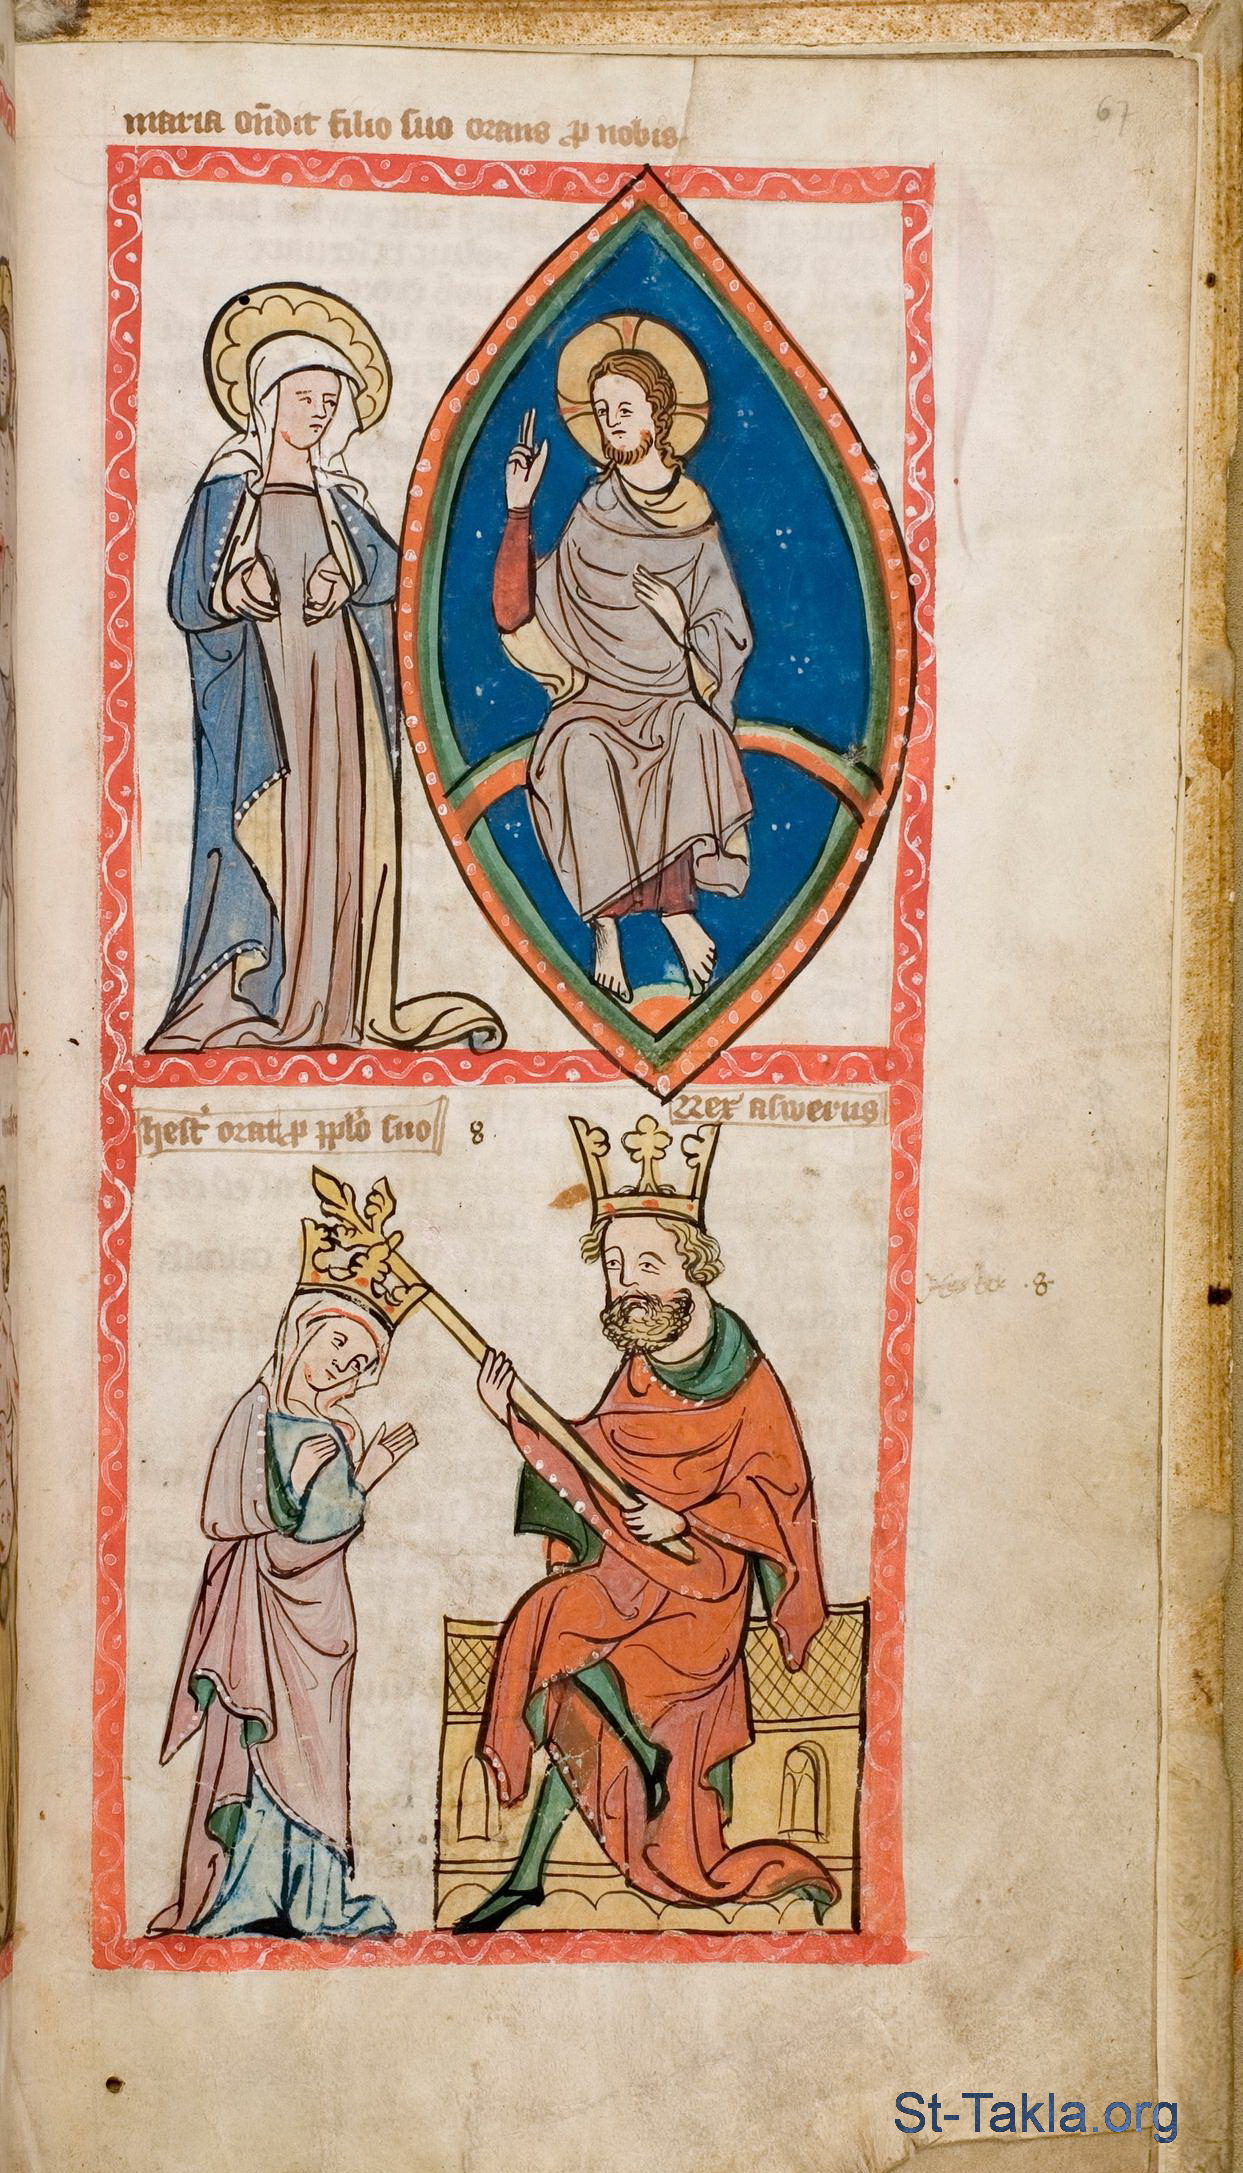 67
maria on̄dit filio suo orans ꝑ nobis
hest' orat ꝑ pplō suo 8
Rex aswerus
8
St-Takla.org